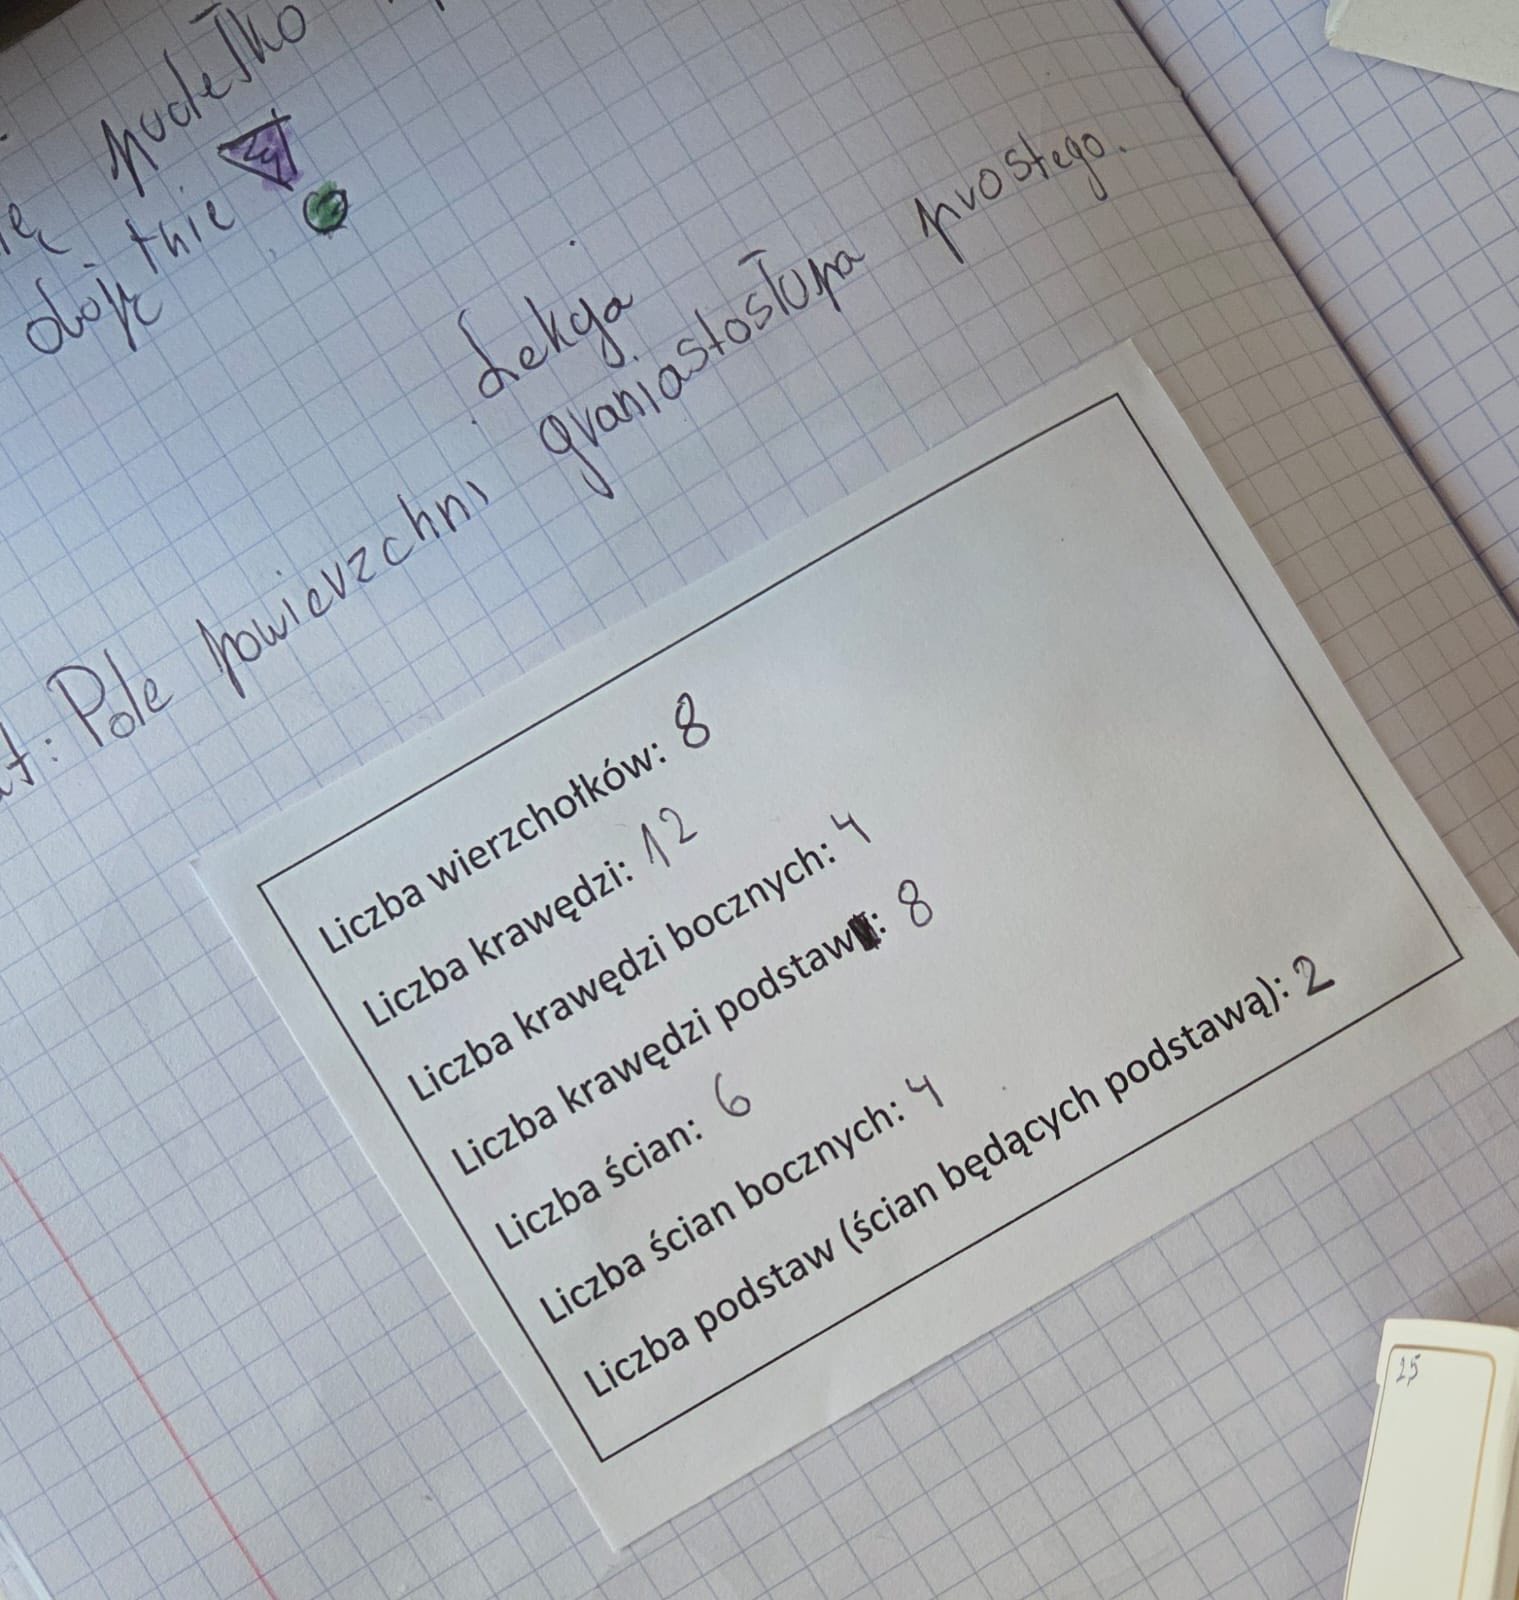 pudełko
obój tnie
Lekcja
: Pole powierzchni graniastosłupa prostego.
Liczba wierzchołków: 8
Liczba krawędzi: 12
Liczba krawędzi bocznych: 4
Liczba krawędzi podstaw: 8
Liczba ścian: 6
Liczba ścian bocznych: 4
Liczba podstaw (ścian będących podstawą): 2
25